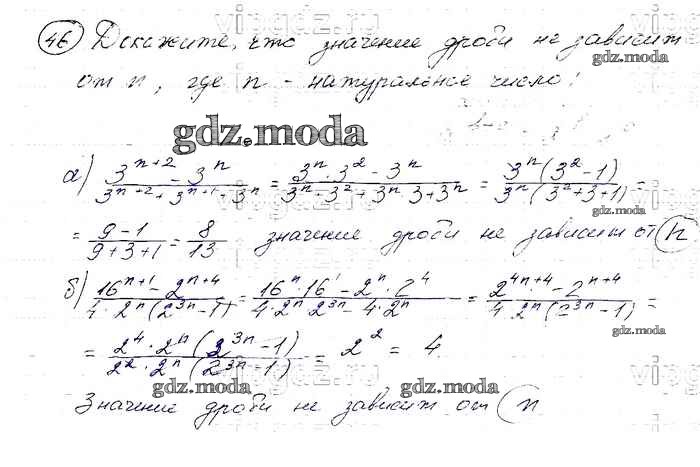 46 Докажите, что значение дроби не зависит
от n, где n - натуральное число:
gdz.moda
а) \frac{3^{n+2} - 3^n}{3^{n+2} + 3^{n+1} + 3^n} = \frac{3^n \cdot 3^2 - 3^n}{3^n \cdot 3^2 + 3^n \cdot 3 + 3^n} = \frac{3^n(3^2 - 1)}{3^n(3^2 + 3 + 1)} =
= \frac{9 - 1}{9 + 3 + 1} = \frac{8}{13} значение дроби не зависит от n
б) \frac{16^{n+1} - 2^{n+4}}{4 \cdot 2^n(2^{3n} - 1)} = \frac{16^n \cdot 16^1 - 2^n \cdot 2^4}{4 \cdot 2^n \cdot 2^{3n} - 4 \cdot 2^n} = \frac{2^{4n+4} - 2^{n+4}}{4 \cdot 2^n(2^{3n} - 1)} =
= \frac{2^4 \cdot 2^n(2^{3n} - 1)}{2^2 \cdot 2^n(2^{3n} - 1)} = 2^2 = 4
gdz.moda
gdz.moda
gdz.moda
gdz.moda
gdz.moda
Значение дроби не зависит от n